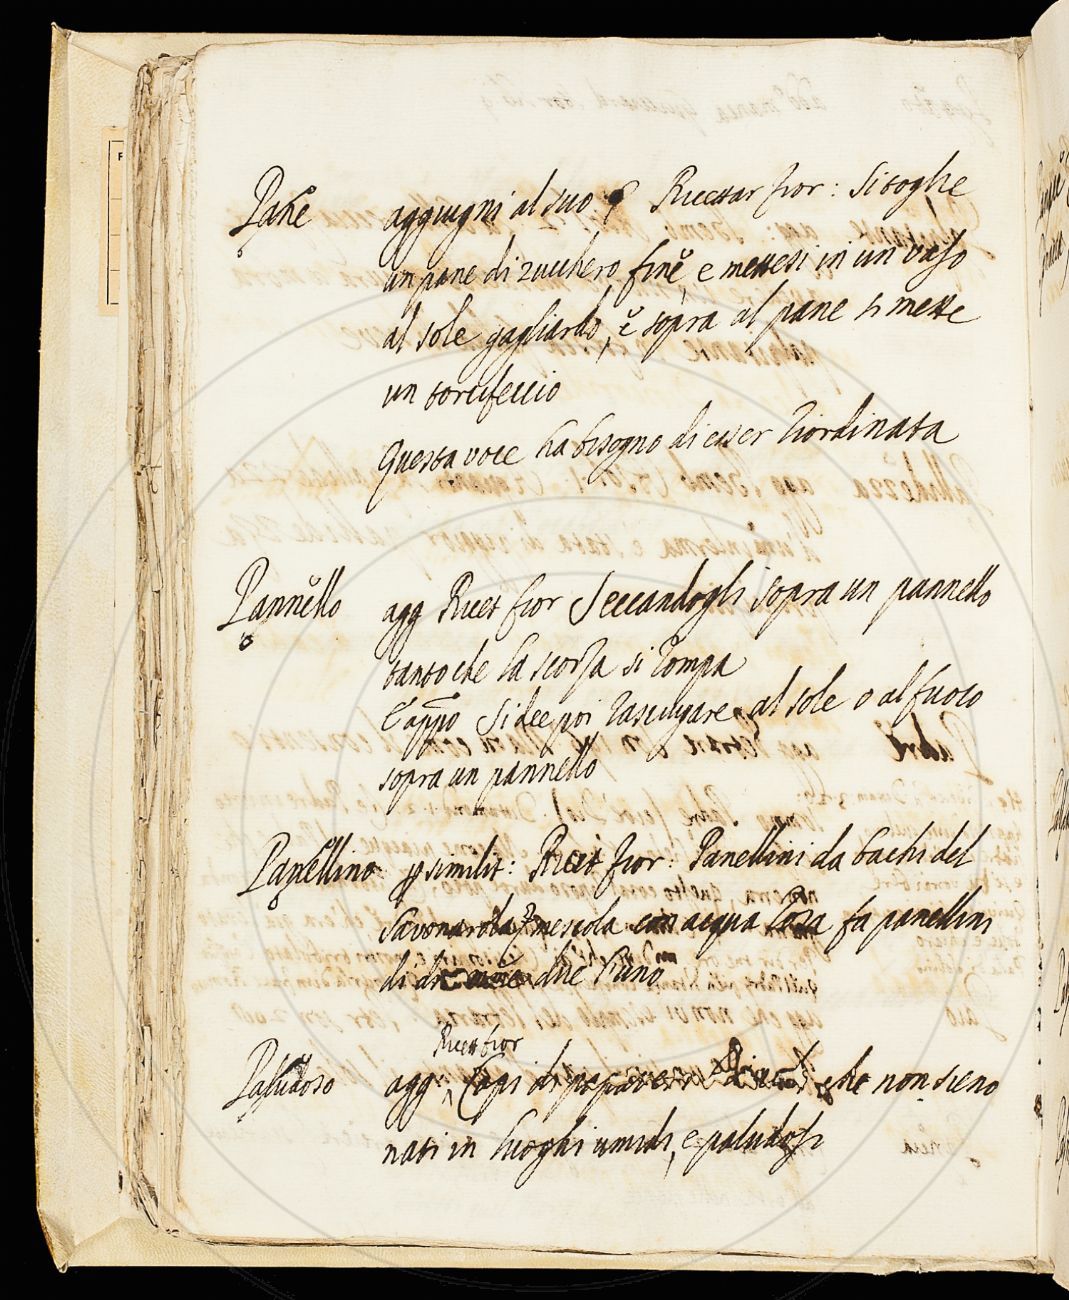 Pane aggiugni al suo § Ricettar fior: Si toglie
un pane di zucchero fine, e mettesi in un vaso
al sole gagliardo, e sopra al pane si mette
un torcifeccio
Questa voce ha bisogno di esser riordinata
Pannello agg Ricet fior Seccandogli sopra un pannello
tanto che la scorza si rompa
E app.o Si dee poi rasciugare al sole o al fuoco
sopra un pannello
Panellino p similit: Ricet fior: Panellini da bachi del
Savonarola mescola con acqua rosa fa panellini
di due l'uno
Paludoso agg Ricett fior Capi di che non sieno
nati in luoghi umidi, e paludosi